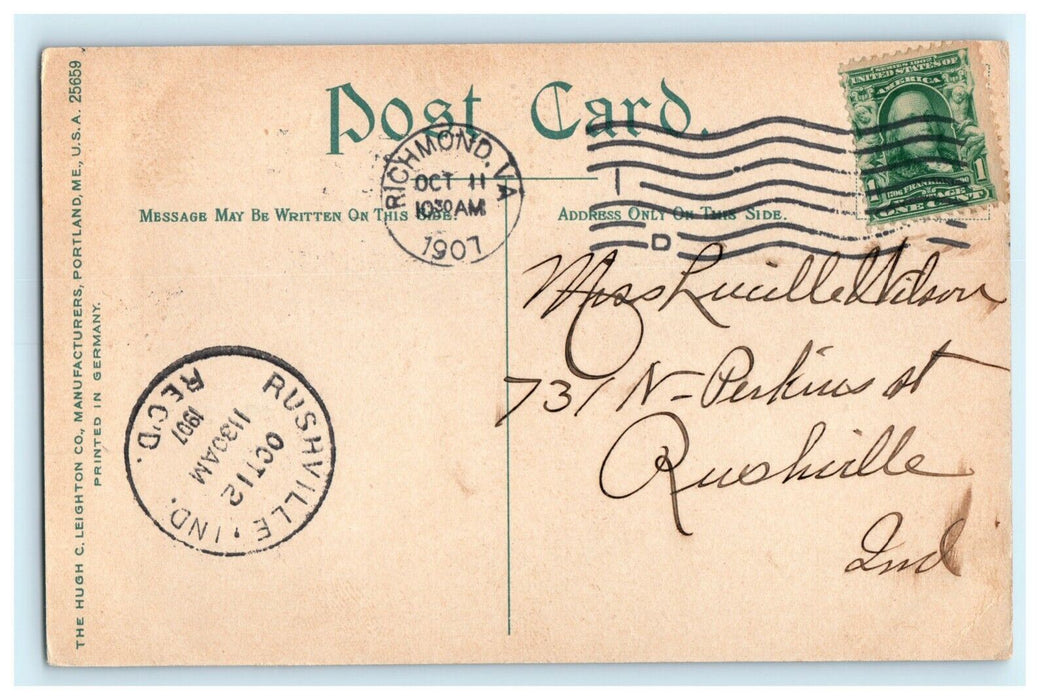 Post Card.
SERIES 1902
UNITED STATES OF
AMERICA
FRANKLIN
1 1
ONE CENT
RICHMOND, VA
OCT 11
1030AM
1907
1
D
MESSAGE MAY BE WRITTEN ON THIS SIDE.
ADDRESS ONLY ON THIS SIDE.
Miss Lucille Wilson
731 N- Perkins st
Rushville
Ind
RUSHVILLE, IND.
OCT 12
1130AM
1907
REC'D.
THE HUGH C. LEIGHTON CO., MANUFACTURERS, PORTLAND, ME., U.S.A. 25659
PRINTED IN GERMANY.